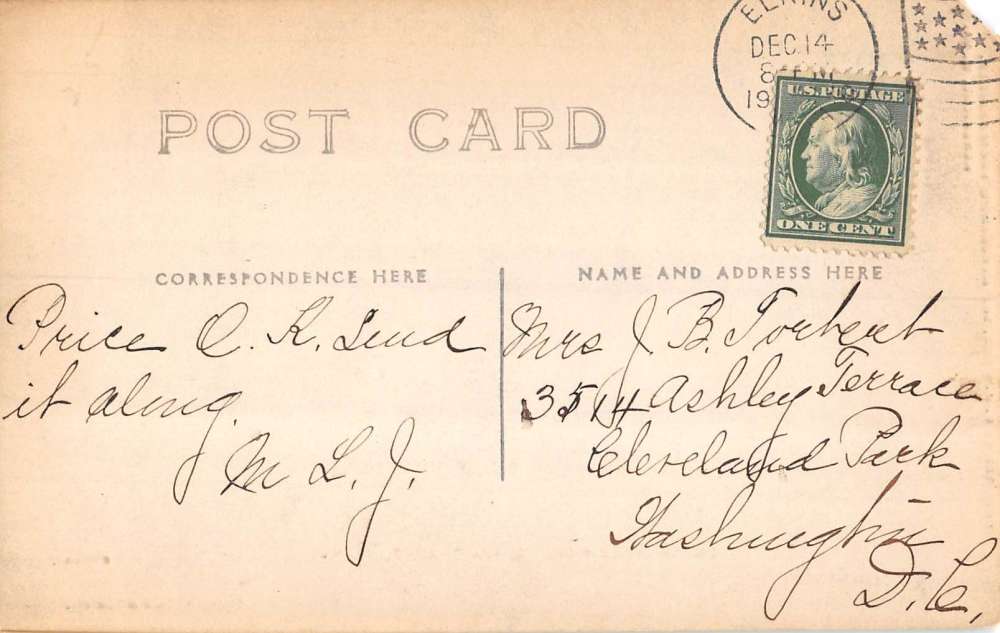 ELKINS
DEC 14
8
19
U.S. POSTAGE
ONE CENT
POST CARD
CORRESPONDENCE HERE
Price O. K. Send
it along.
M L. J.
NAME AND ADDRESS HERE
Mrs J. B. Torbert
3514 Ashley Terrace
Cleveland Park
Washington
D. C.